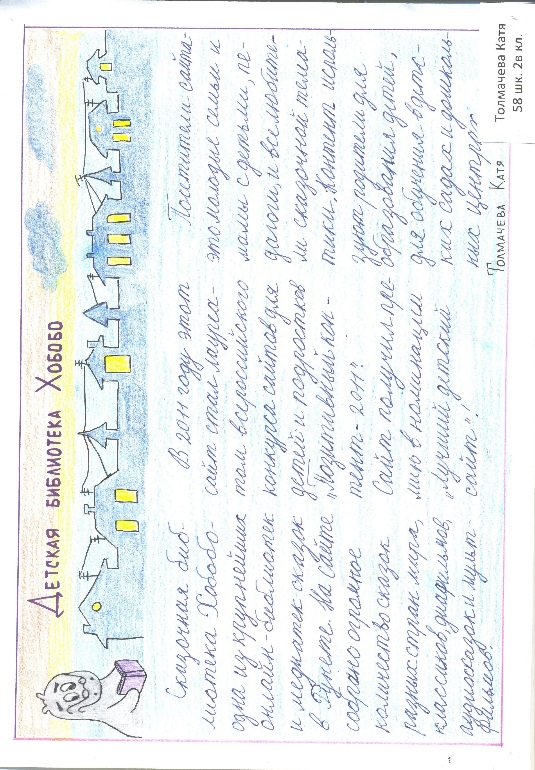 Детская библиотека Хобобо
Сказочная биб-
лиотека Хобобо-
одна из крупнейших
онлайн-библиотек
и медиатек сказок
в Рунете. На сайте
собрано огромное
количество сказок
разных стран мира,
классиков, диафильмов,
аудиосказок и мульт-
фильмов.
В 2011 году этот
сайт стал лауреа-
том всероссийского
конкурса сайтов для
детей и подростков
„Позитивный кон-
тент-2011".
Сайт получил пре
мию в номинации
„Лучший детский
сайт"!
Посетители сайта-
это молодые семьи и
мамы с детьми, пе-
дагоги, и все любите-
ли сказочной тема-
тики. Контент исполь-
зуют родители для
образования детей,
для обучения в детс-
ких садах и дошколь-
ных центрах.
Толмачева Катя
Толмачева Катя
58 шк. 2в кл.
1